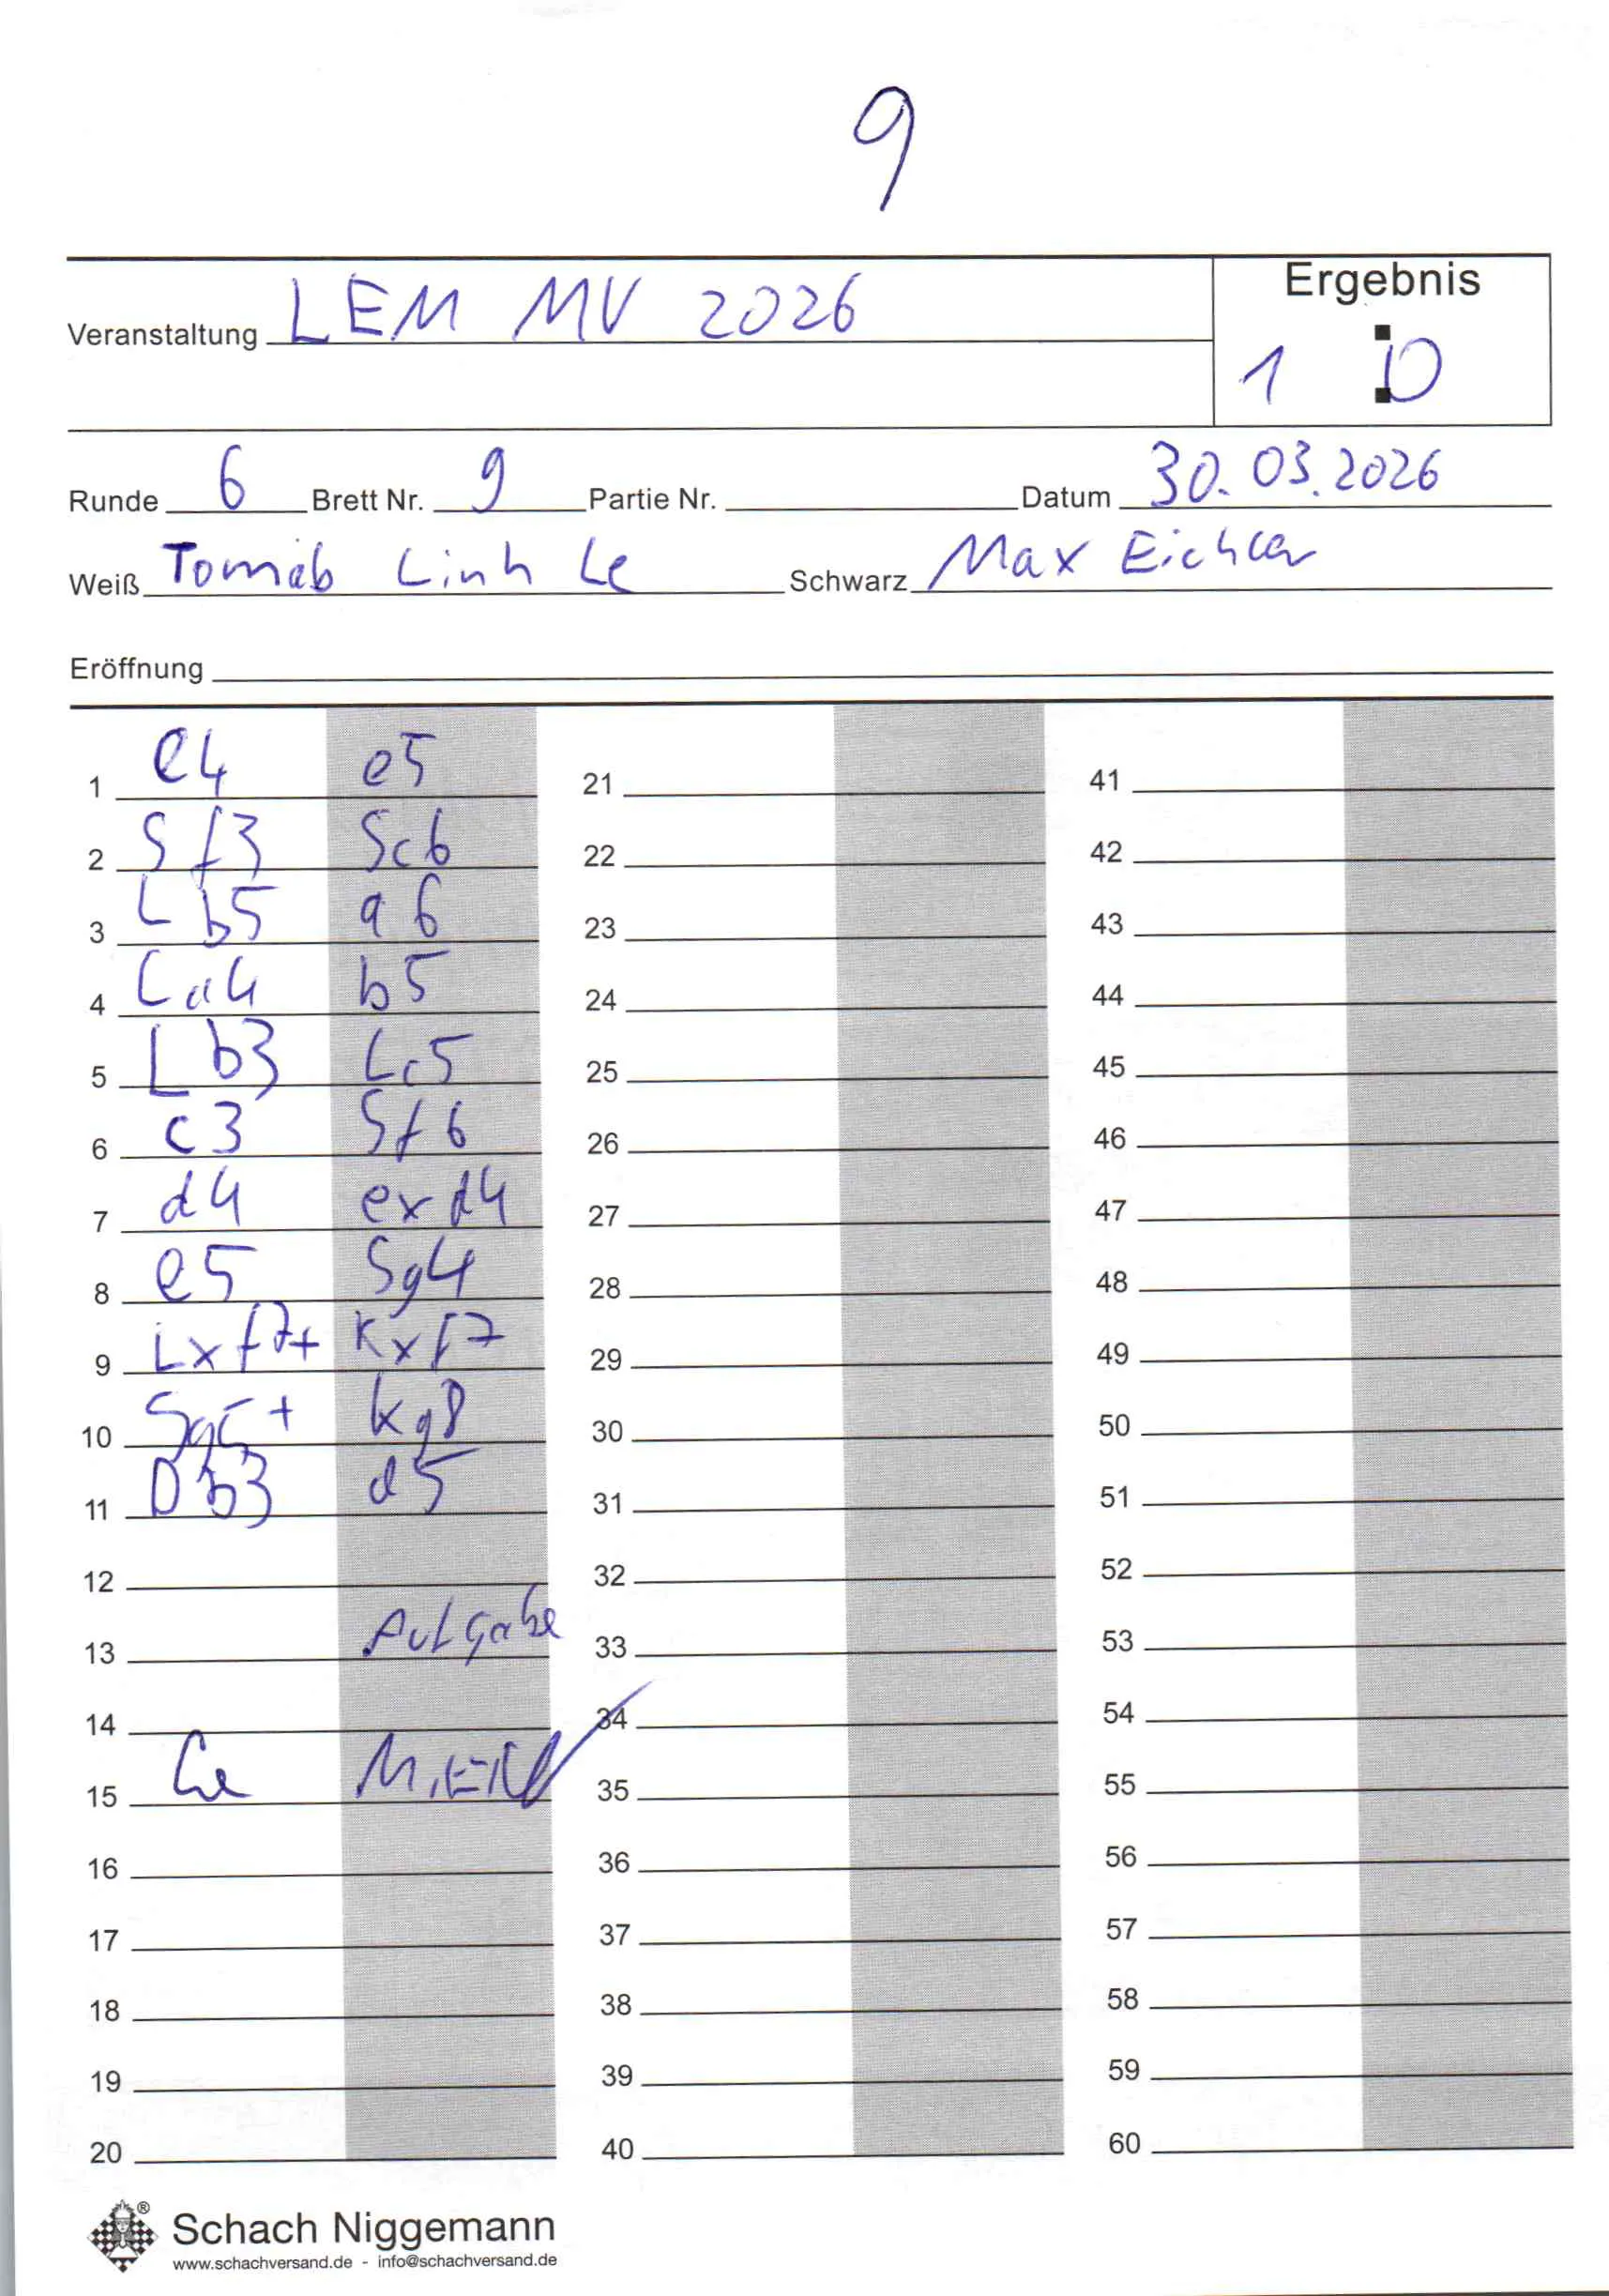 9
Ergebnis
Veranstaltung LEM MV 2026
1 : 0
Runde 6 Brett Nr. 9 Partie Nr. Datum 30.03.2026
Weiß Linh Le Schwarz Max Eichler
Eröffnung
1 e4 e5 21 41
2 Sf3 Sc6 22 42
3 Lb5 a6 23 43
4 La4 b5 24 44
5 Lb3 Lc5 25 45
6 c3 Sf6 26 46
7 d4 exd4 27 47
8 e5 Sg4 28 48
9 Lxf7+ Kxf7 29 49
10 Sg5+ Kg8 30 50
11 Db3 d5 31 51
12 32 52
13 Aufgabe 33 53
14 34 54
15 Le 35 55
16 36 56
17 37 57
18 38 58
19 39 59
20 40 60
® Schach Niggemann
www.schachversand.de - info@schachversand.de